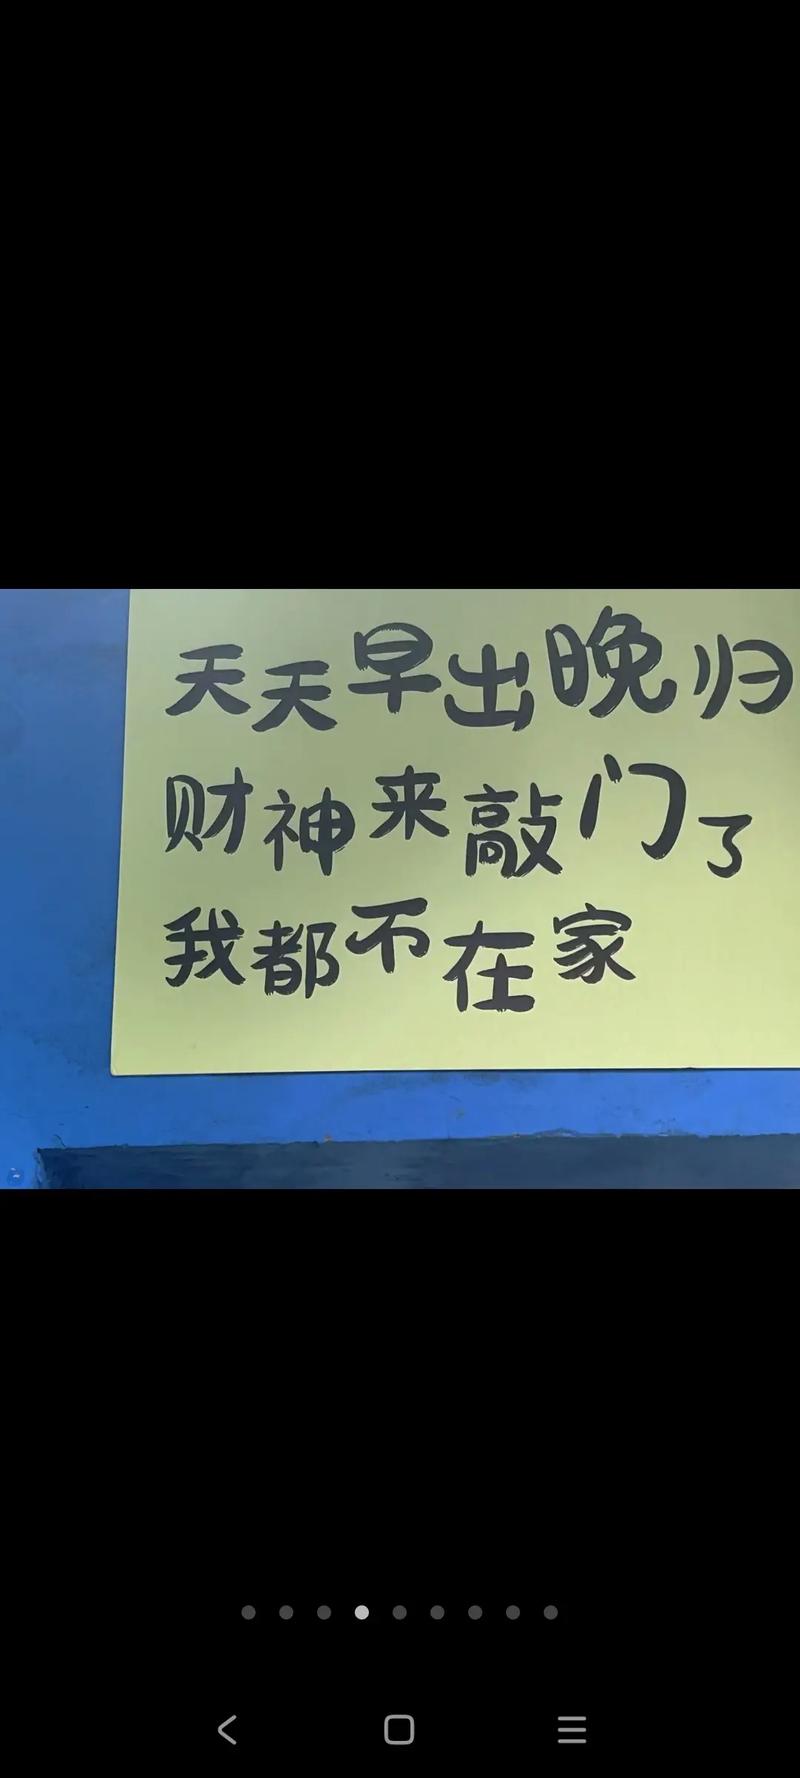 天天早出晚归
财神来敲门了
我都不在家